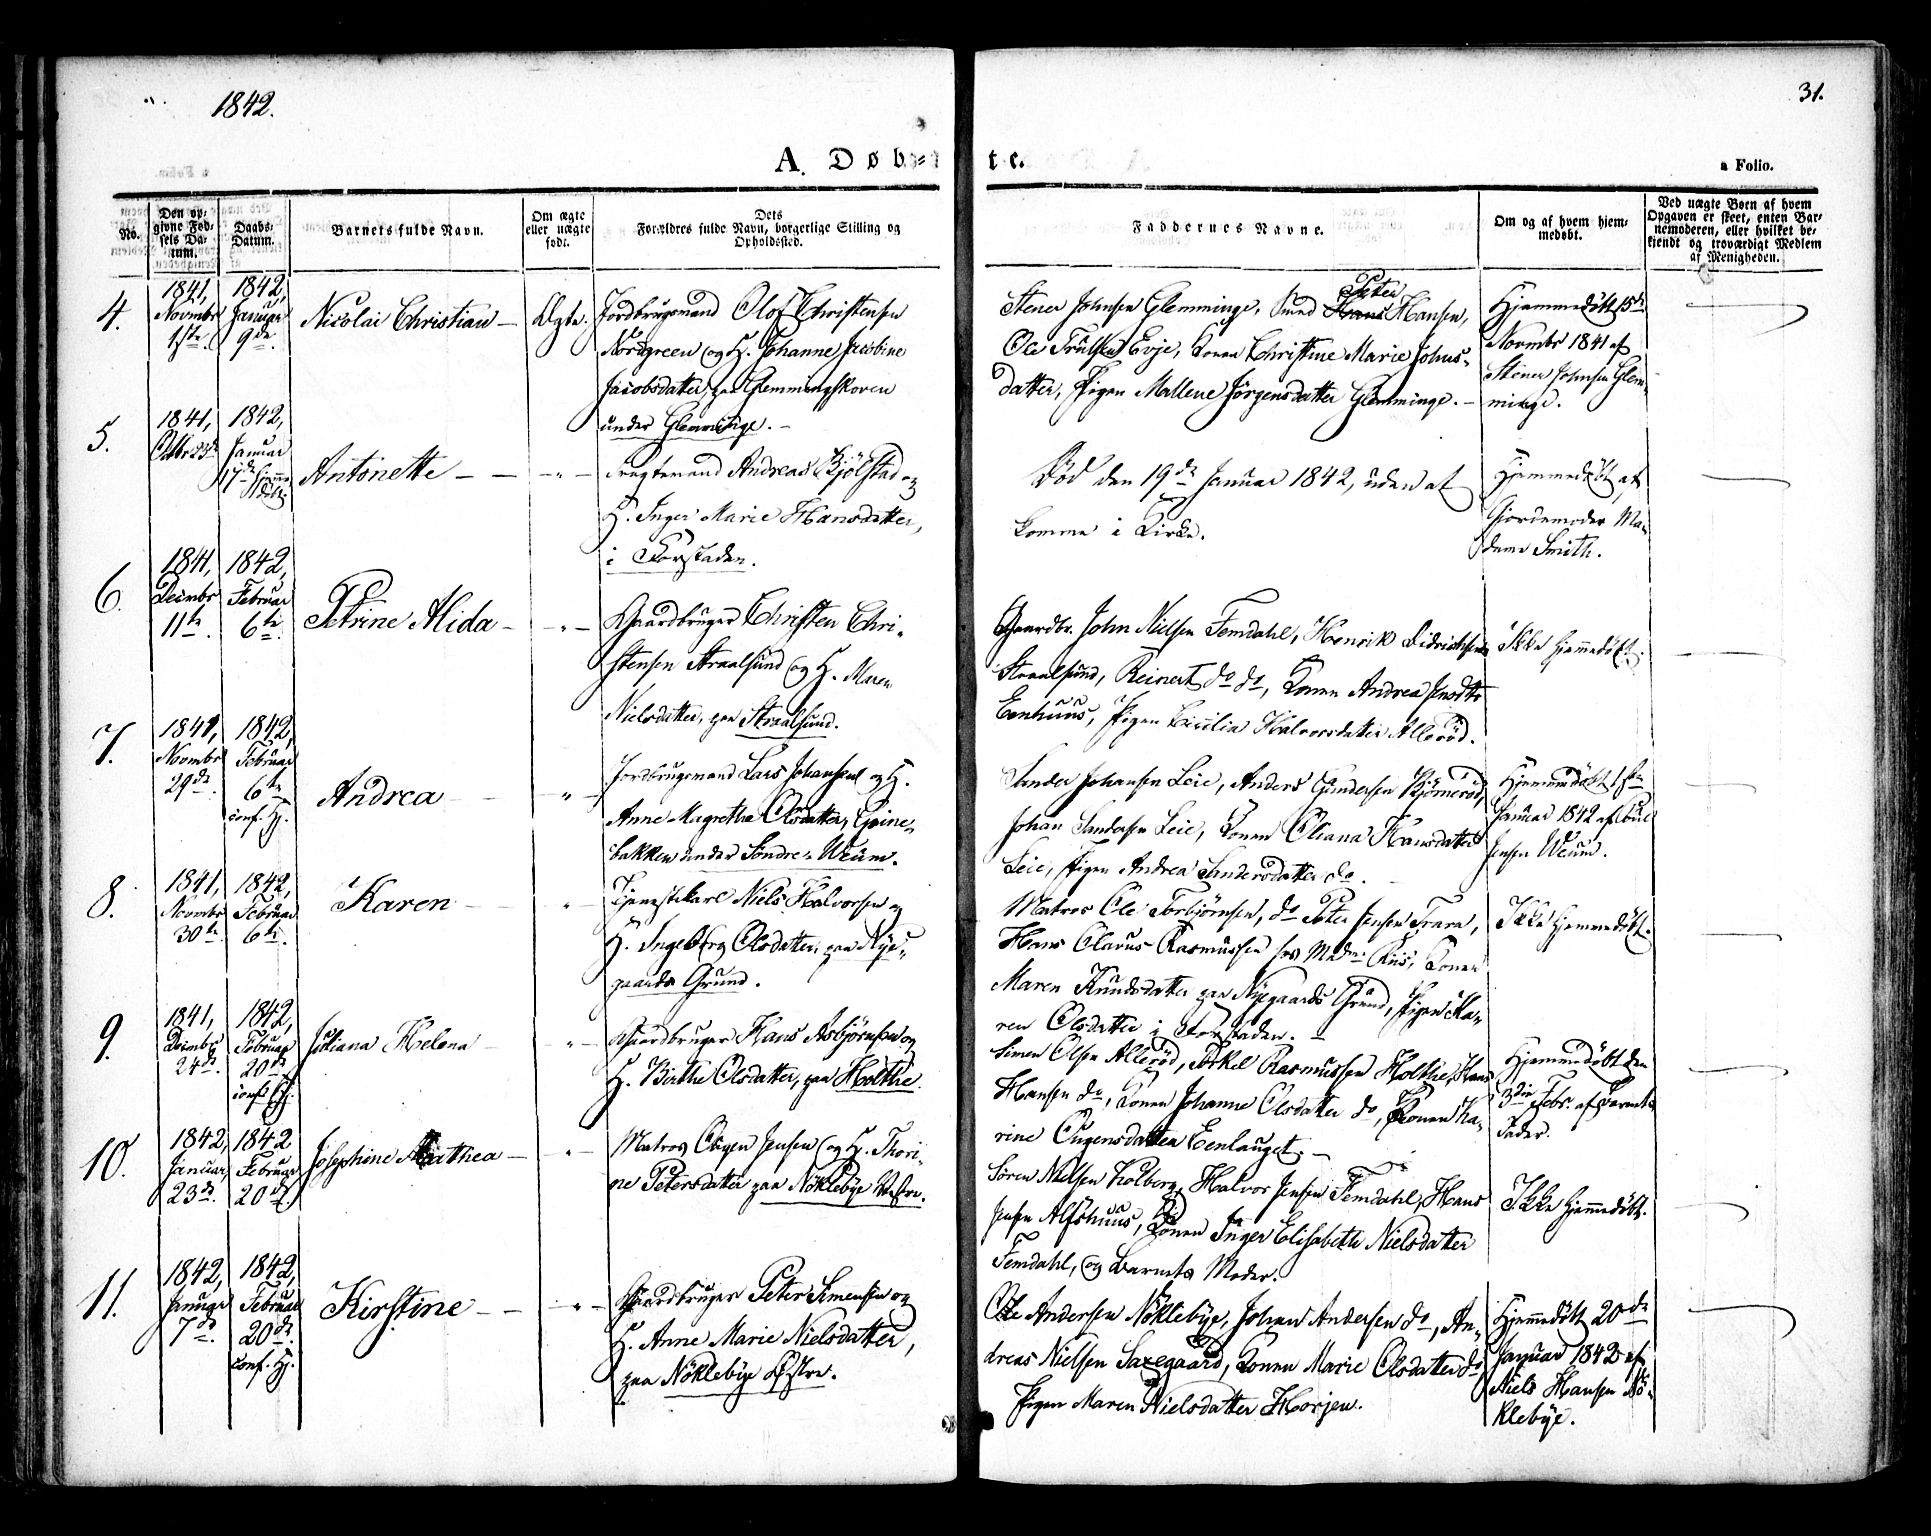 1842.
31.
A. Døb-
te.
a Folio.
No.
Den op-
givne Fød-
sels Da-
tum.
Daabs-
Datum.
Barnets fulde Navn.
Om ægte
eller uægte
født.
Dets
Forældres fulde Navn, borgerlige Stilling og
Opholdssted.
Faddernes Navne.
Om og af hvem hjem-
medøbt.
Ved uægte Børn af hvem
Opgaven er skeet, enten Bar-
nemoderen, eller hvilket be-
kjendt og troværdigt Medlem
af Menigheden.
4.
1841,
Novmbr
1ste.
1842,
Januar
9de.
Nicolai Christian —
Ægte.
Jordbrugsmand Olof Christensen
Nordgreen og H. Johanne Jacobine
Jacobsdatter, paa Glemmingskoven
under Glemminge. —
Stener Johnsen Glemminge, Svend Peter Hansen,
Ole Trulsen Evje, Konen Christine Marie Johns-
datter, Pigen Mallene Jørgensdatter Glemminge. —
Hjemmedøbt 15de
Novmbr 1841 af
Stener Johnsen Glem-
minge.
5.
1841,
Octbr 23de
1842,
Januar
17de hjemme
døbt.
Antonette — —
— " —
Fragtemand Andreas Kjølstad og
H. Inger Marie Hansdatter,
i Forstaden.
Død den 19de Januar 1842, uden at
komme i Kirke.
Hjemmedøbt af
Gjordemoder Ma-
dame Smith.
6.
1841,
Decmbr
11te.
1842,
Februar
6te.
Petrine Alida —
— " —
Gaardbruger Christen Chri-
stensen Straalsund og H. Maren
Nielsdatter, paa Straalsund.
Gaardbr. John Nielsen Femdahl, Henrik Didrichsen
Straalsund, Reinert do do, Konen Andrea
Eenhuus, Pigen Cicilia Halvorsdatter Allerød.
Ikke hjemmedøbt.
7.
1841,
Novmbr
29de.
1842,
Februar
6te
conf. Hj.
Andrea —
"
Jordbrugsmand Lars Johansen og H.
Anne Magrethe Olsdatter, Grine-
bakken under Søndre Weum.
Sander Johansen Leie, Anders Gundersen Bjørnerød,
Johan Sandersen Leie, Konen Oliana Hansdatter
Leie, Pigen Andrea Sandersdatter do.
Hjemmedøbt 1ste
Januar 1842 af Poul
Jensen Weum.
8.
1841,
Novmbr
30te.
1842,
Februar
6te.
Karen —
"
Tjenestekarl Niels Halvorsen og
H. Ingeborg Olsdatter, paa Nye-
gaards Grund.
Matros Ole Torbjørnsen, do Peter Jensen Trara,
Hans Olavus Rasmussen hos Madm: Riis, Konen
Maren Knudsdatter paa Nyegaards Grund, Pigen Ka-
ren Olsdatter i Forstaden. —
Ikke hjemmedøbt.
9.
1841,
Decmbr
24de.
1842,
Februar
20de
conf. Hj.
Juliana Helena —
"
Gaardbruger Hans Asbjørnsen og
H. Birthe Olsdatter, paa Holthe.
Simen Olsen Allerød, Torkel Rasmussen Holthe, Hans
Hansen do, Konen Johanne Olsdatter do, Konen Ka-
rine Eugensdatter Eenlauget. —
Hjemmedøbt den
3die Febr. af Barnets
Fader.
10.
1842,
Januar
23de.
1842
Februar
20de
Josephine Mathea —
"
Matros Eugen Jensen og H. Thori-
ne Petersdatter paa Nøklebye Vestre.
Søren Nielsen Kolberg, Halvor Jensen Femdahl, Hans
Jensen Alfshuus, Konen Inger Elisabeth Nielsdatter
Femdahl, og Barnets Moder.
Ikke hjemmedøbt.
11.
1842,
Januar
7de.
1842,
Februar
20de.
conf. Hj.
Kirstine — —
"
Gaardbruger Peter Simensen og
H. Anne Marie Nielsdatter,
paa Nøklebye Østre.
Ole Andersen Nøklebye, Johan Andersen do, An-
dreas Nielsen Saxegaard, Konen Marie Olsdatter do,
Pigen Maren Nielsdatter Horjen.
Hjemmedøbt 20de
Januar 1842 af
Niels Hansen Nø-
klebye.